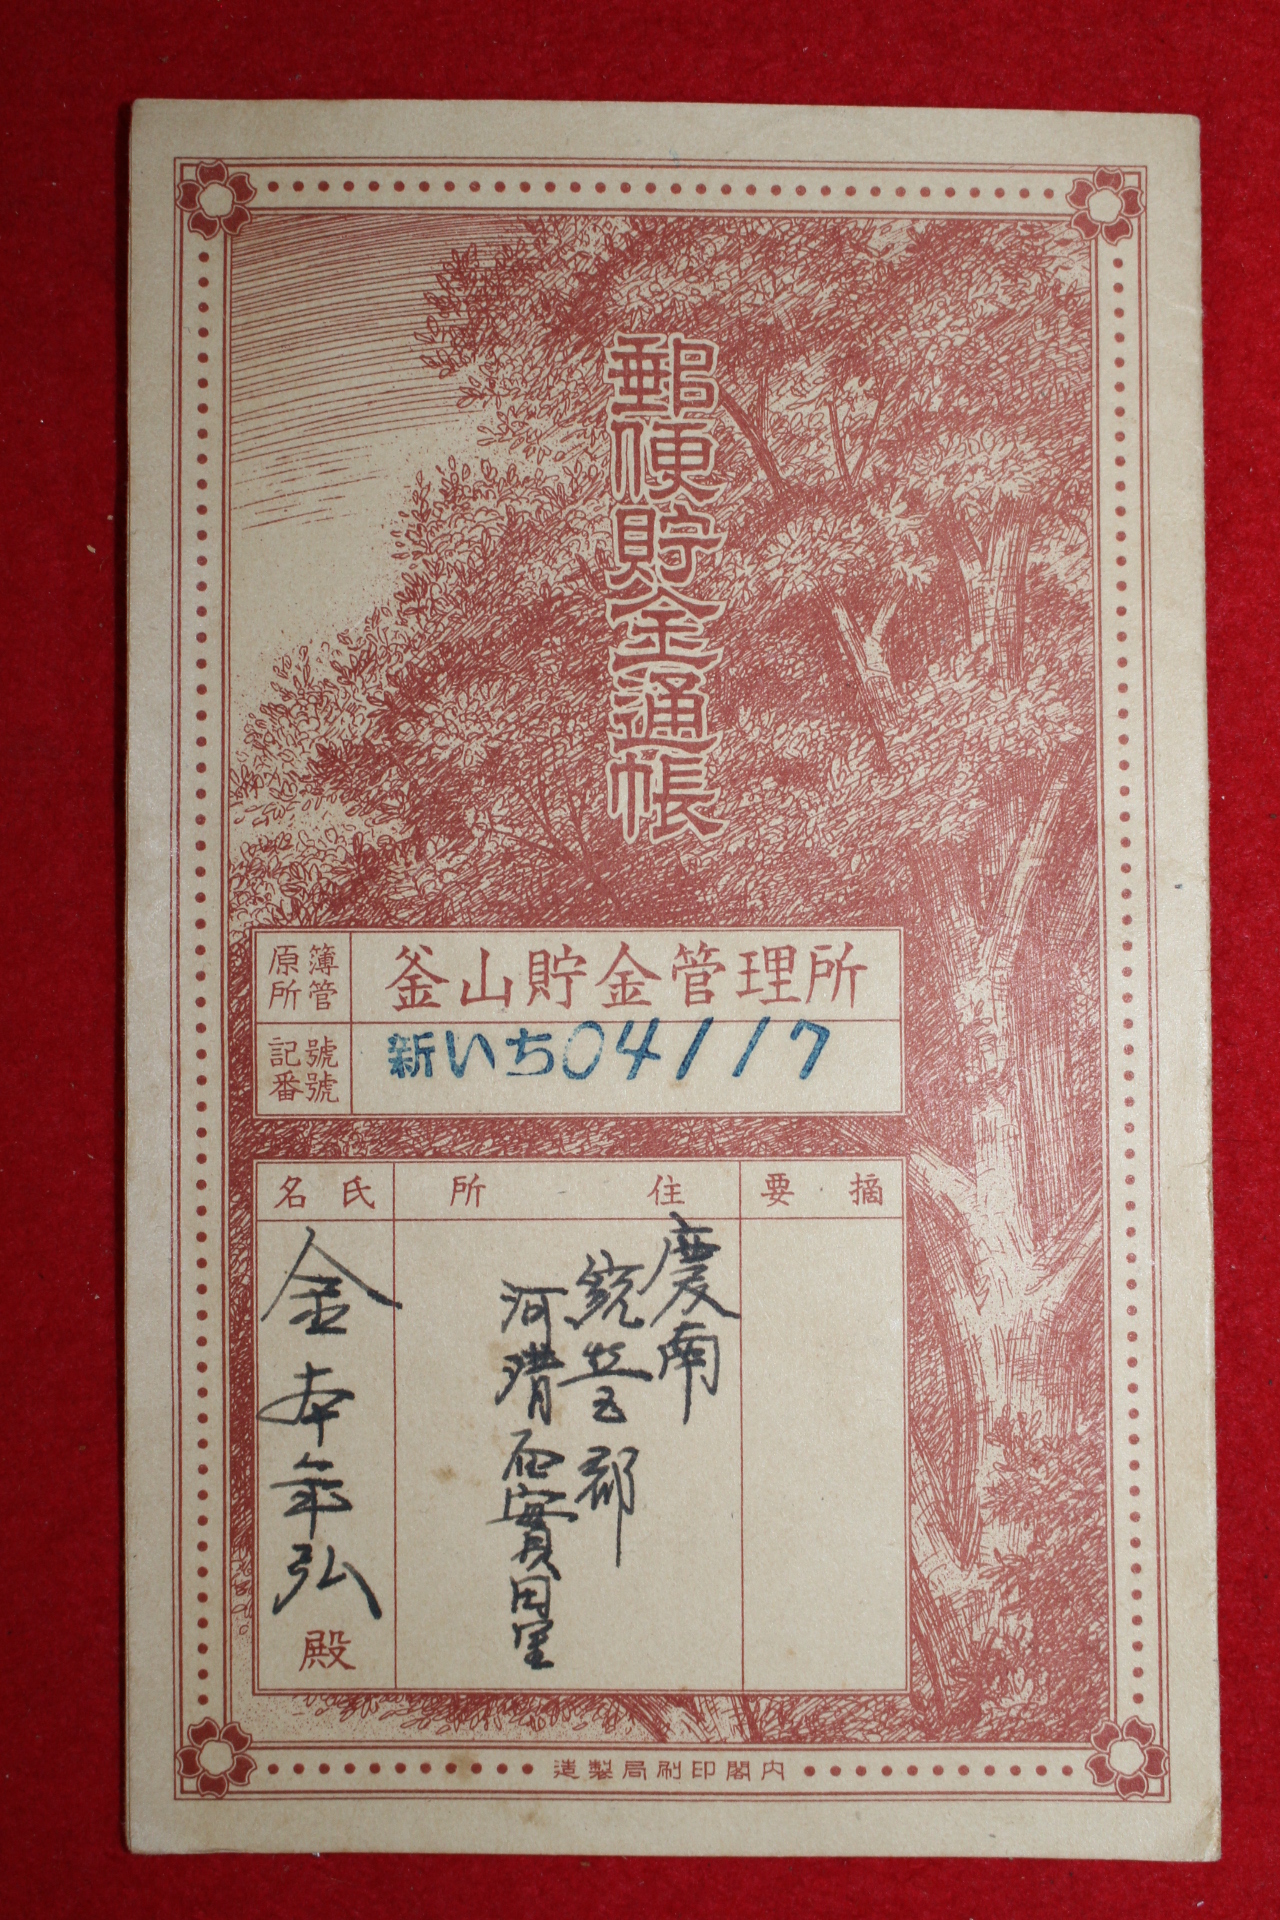 郵便貯金通帳
原簿所管
釜山貯金管理所
記號番號
新いち04117
摘要
住所
氏名
慶南
統営郡
河清面實田里
金本年弘
殿
内閣印刷局製造